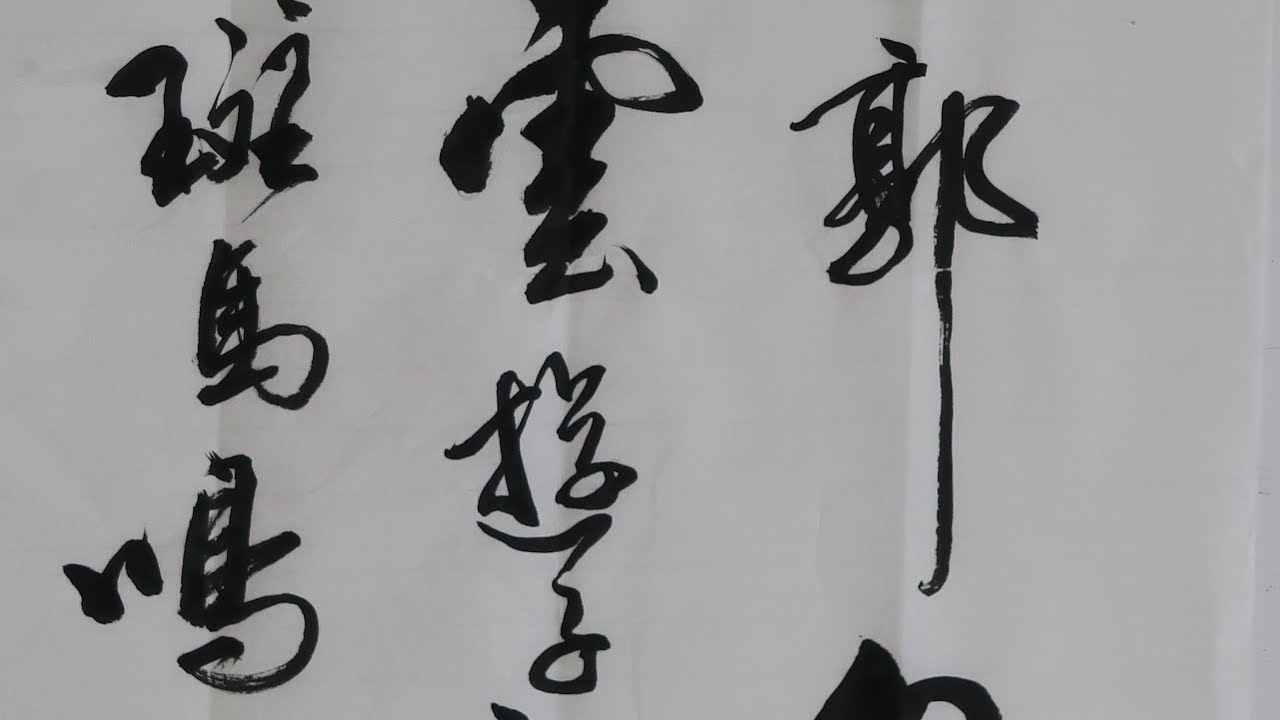 郭
雲遊子
班馬鳴